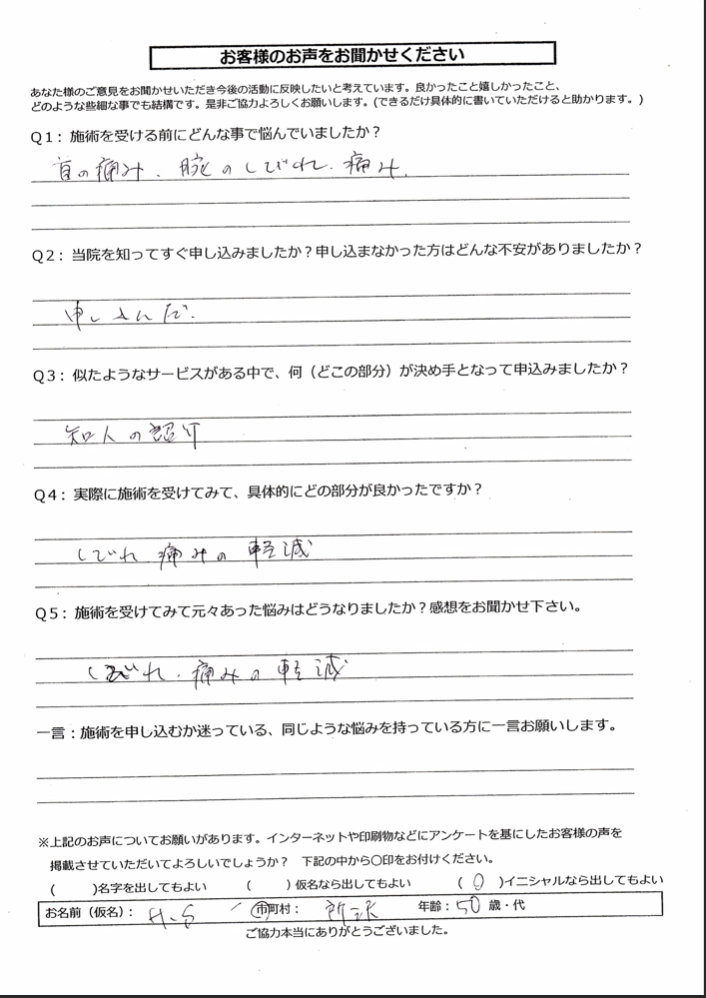 お客様のお声をお聞かせください
あなた様のご意見をお聞かせいただき今後の活動に反映したいと考えています。良かったこと嬉しかったこと、
どのような些細な事でも結構です。是非ご協力よろしくお願いします。(できるだけ具体的に書いていただけると助かります。)
Q1：施術を受ける前にどんな事で悩んでいましたか？
首の痛み、腕のしびれ、痛み、
Q2：当院を知ってすぐ申し込みましたか？申し込まなかった方はどんな不安がありましたか？
申しこんだ.
Q3：似たようなサービスがある中で、何（どこの部分）が決め手となって申込みましたか？
知人の紹介
Q4：実際に施術を受けてみて、具体的にどの部分が良かったですか？
しびれ 痛みの 軽減
Q5：施術を受けてみて元々あった悩みはどうなりましたか？感想をお聞かせ下さい。
しびれ．痛みの軽減
一言：施術を申し込むか迷っている、同じような悩みを持っている方に一言お願いします。
※上記のお声についてお願いがあります。インターネットや印刷物などにアンケートを基にしたお客様の声を
掲載させていただいてよろしいでしょうか？ 下記の中から〇印をお付けください。
(　　)名字を出してもよい　(　　)仮名なら出してもよい　(　０　)イニシャルなら出してもよい
お名前（仮名）：　H.S　／　市町村：　所沢　年齢：50 歳・代
ご協力本当にありがとうございました。